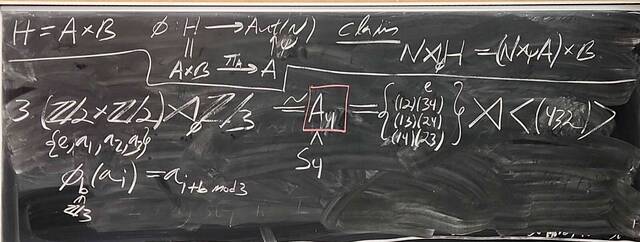 H = A×B  ϕ: H → Aut(N)  claim
A×B →π_A A  N⋊_ϕ H = (N⋊_ψ A) × B
3 (Z/2 × Z/2) ⋊_ϕ Z/3 ≅ A_4 = { e (12)(34) (13)(24) (14)(23) } ⋊ <(432)>
{e, a_1, a_2, a_3}
S_4
ϕ_b(a_i) = a_{i+b mod 3}
Z/3